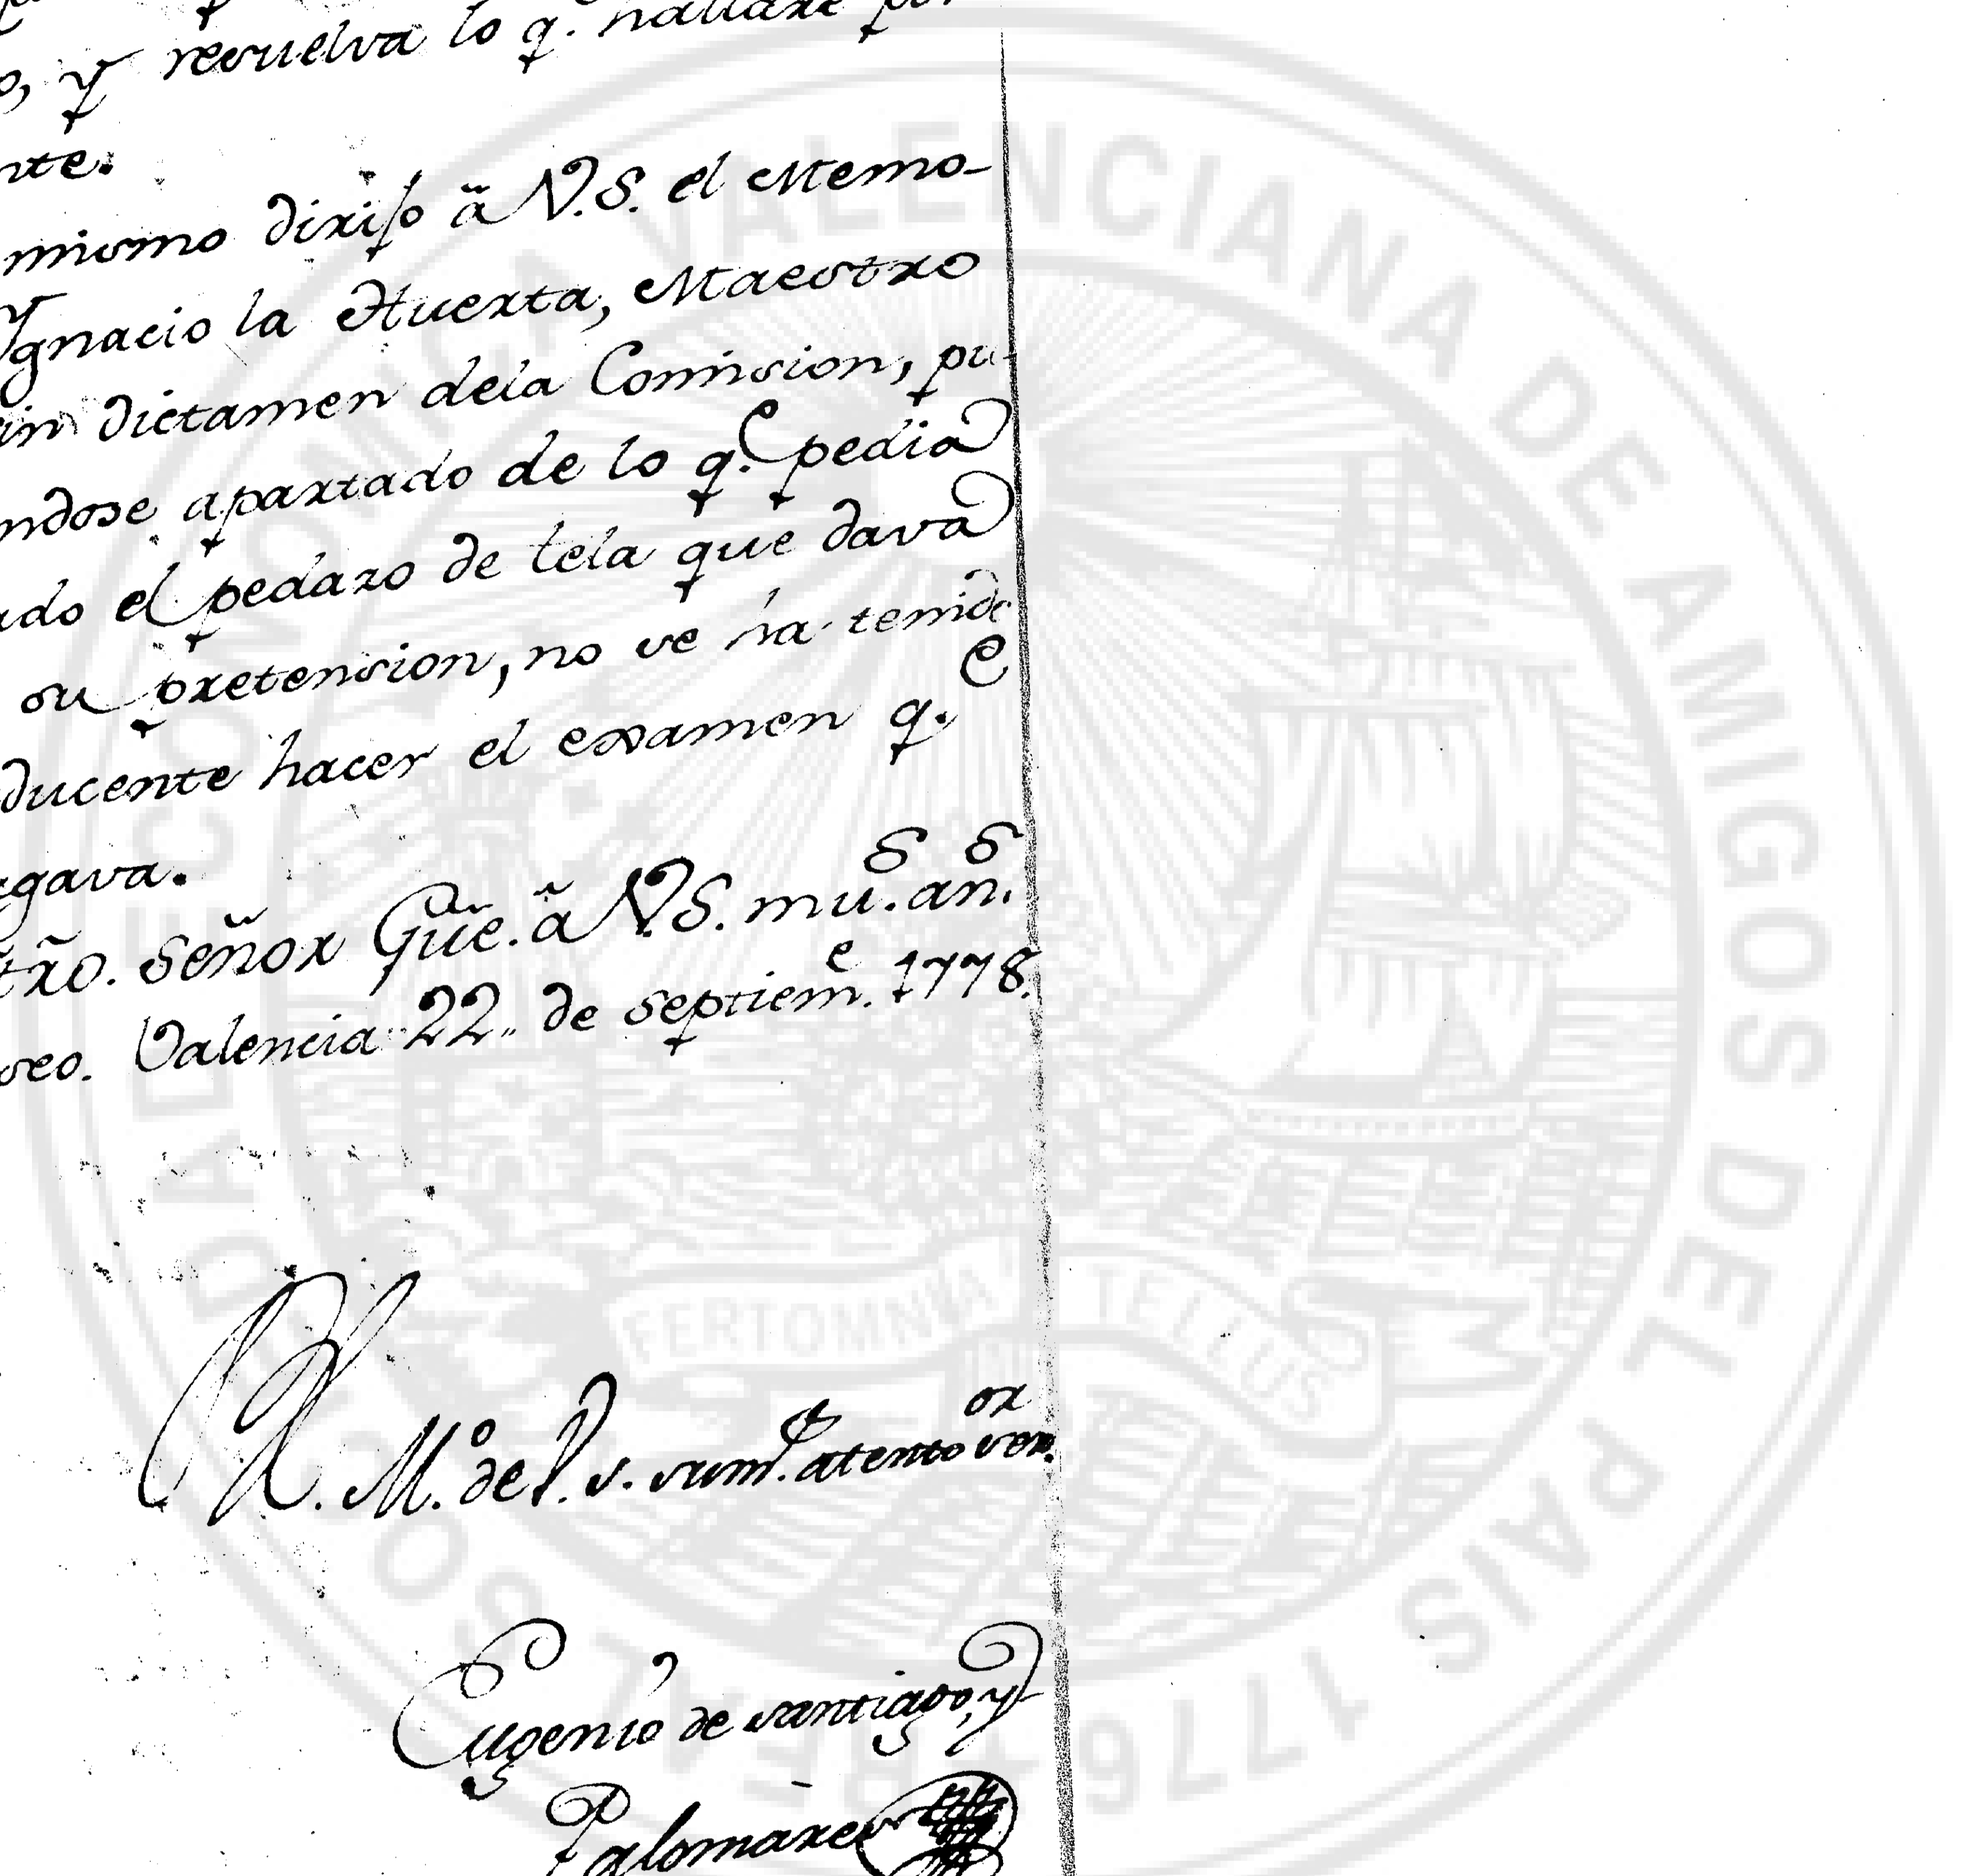 y resuelva lo q. hallare
nte.
mismo dirijo â V.S. el Memo-
Ygnacio la Huerta, Maestro
dictamen dela Comision, pu-
ndose apartado de lo q.e pedia
ado el pedazo de tela que dava
su pretension, no se ha tenido
ducente hacer el examen q.e
egava.
tr̃o. Señor Gũe. â V.S. mu.s an.s
seo. Valencia 22,, de Septiem.e 1778.
M.o de V. S. sum.te atento ser.or
Eugenio de Santiago, y
Palomares
REAL SOCIEDAD ECONOMICA VALENCIANA DE AMIGOS DEL PAIS 1776
FERT OMNIA TELLUS